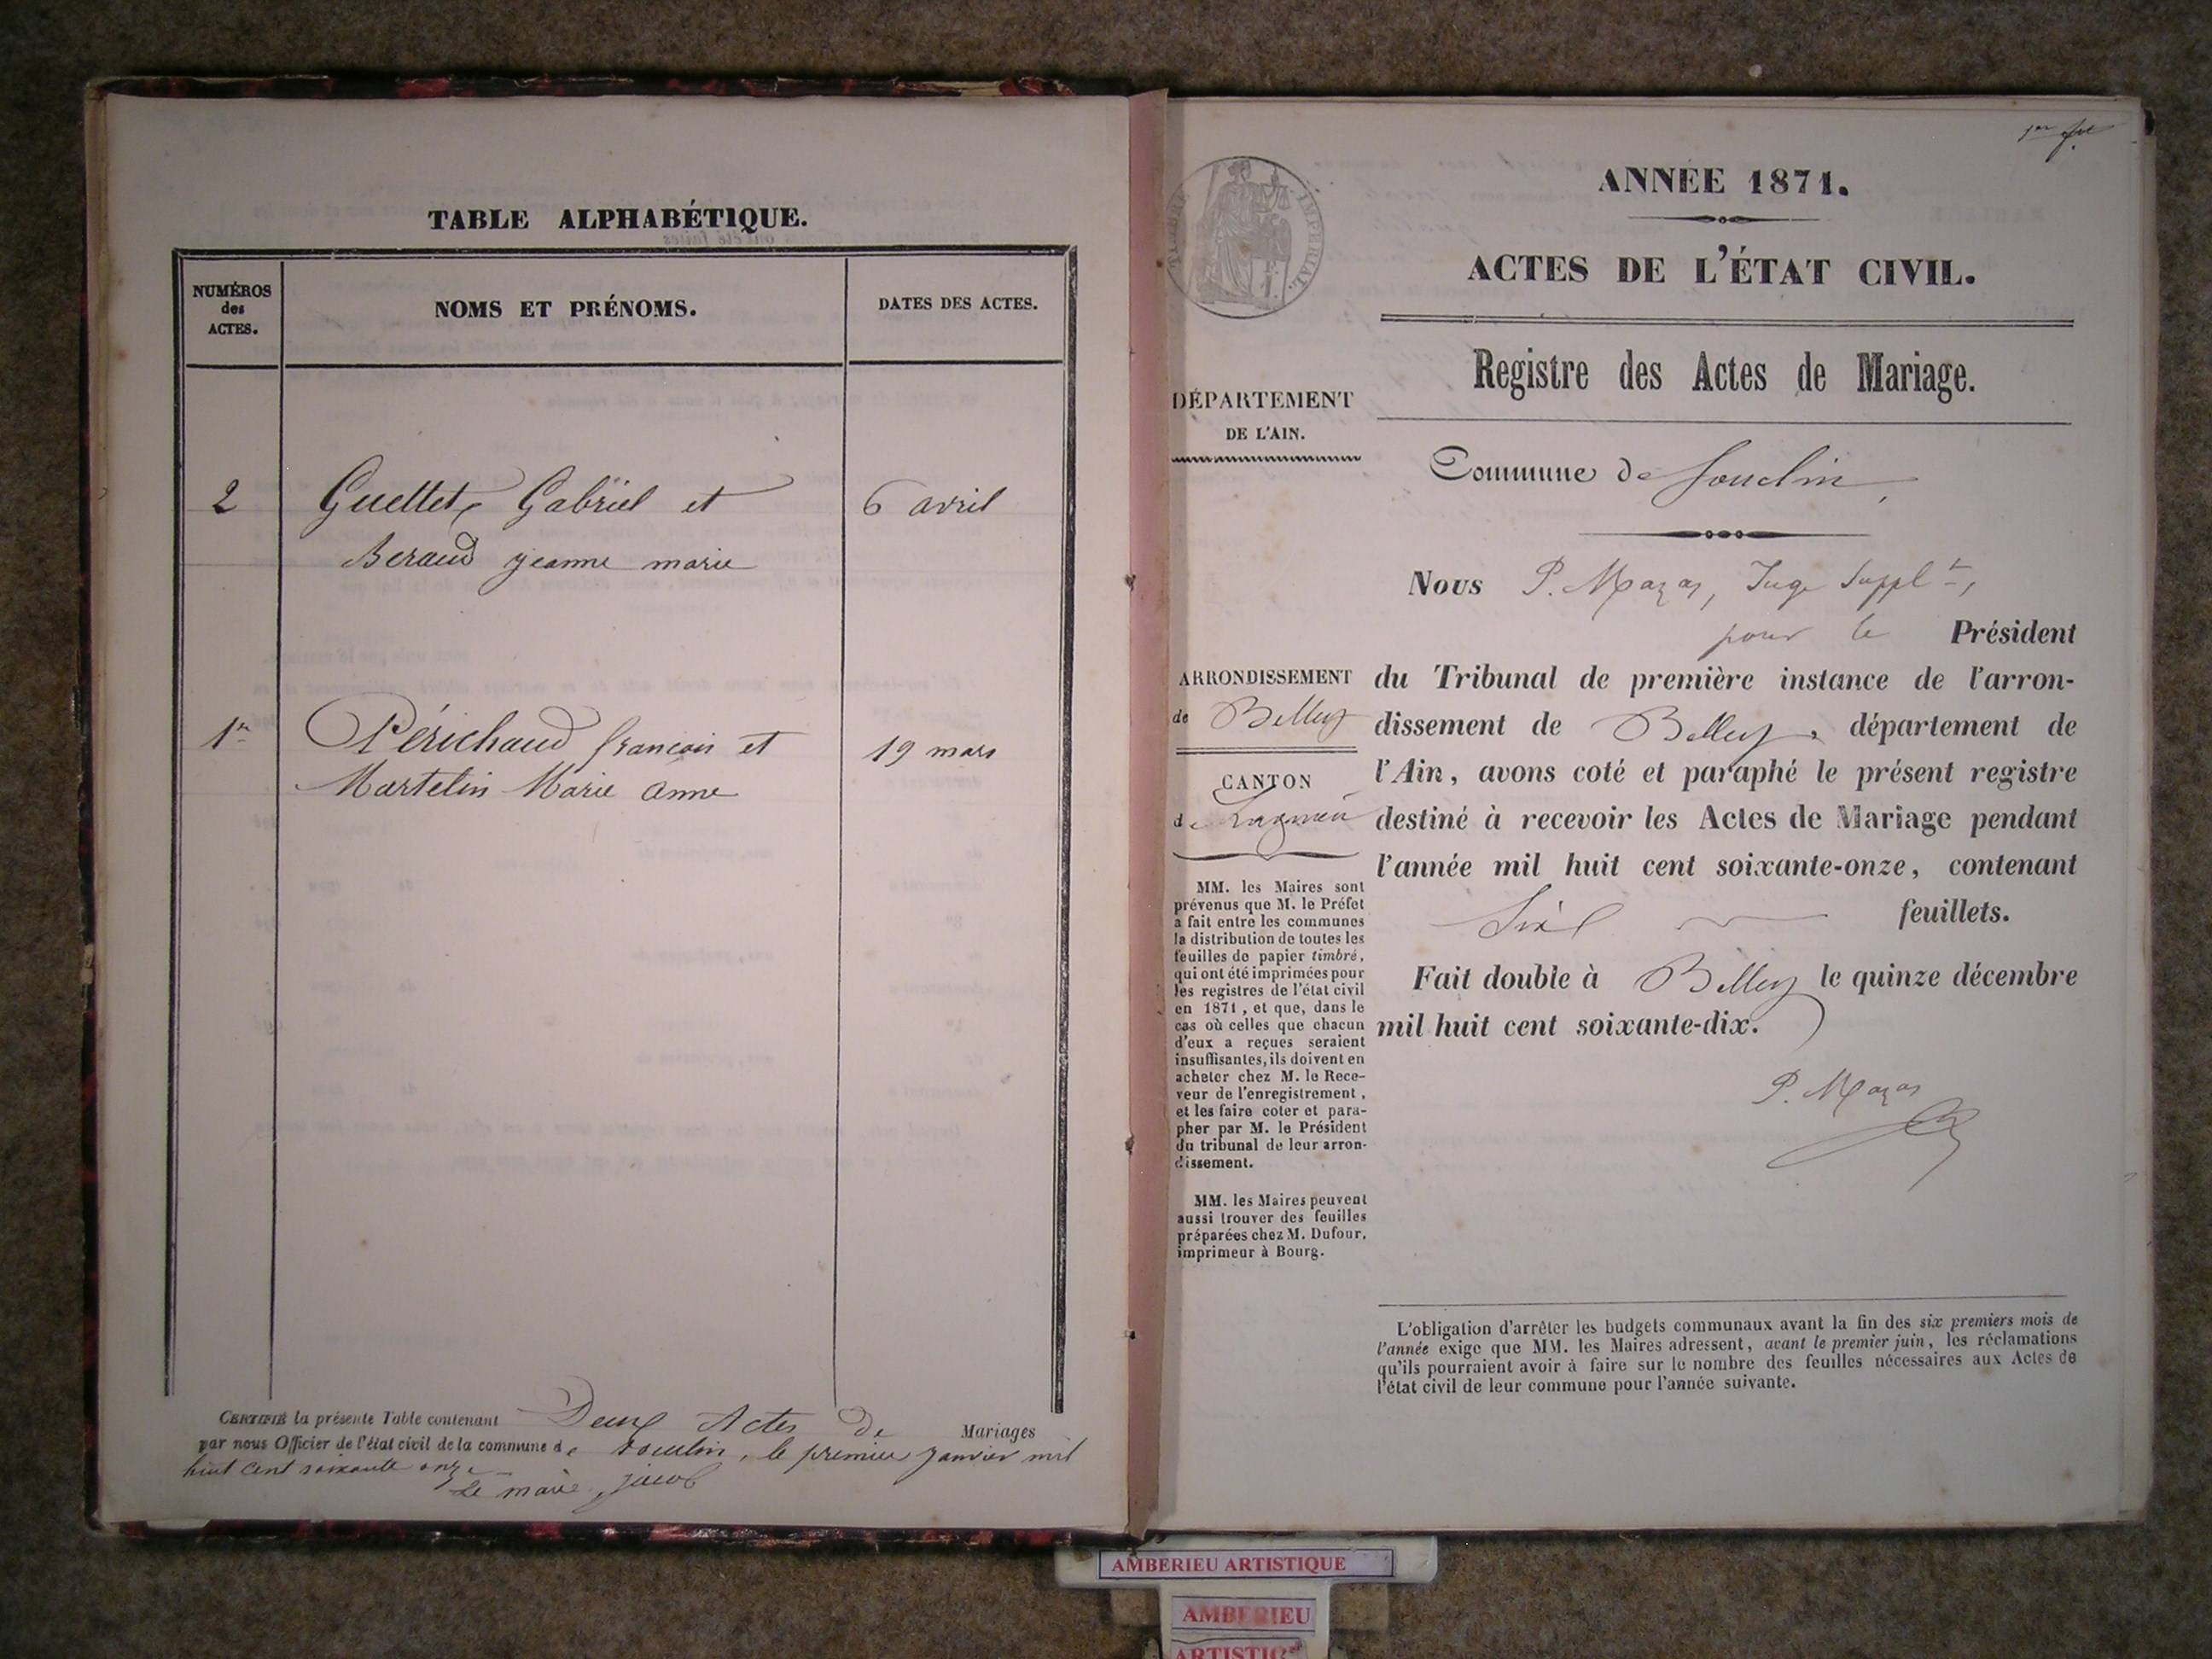 TABLE ALPHABÉTIQUE.
NUMÉROS
des
ACTES.
NOMS ET PRÉNOMS.
DATES DES ACTES.
2 Guettet, Gabriel et 6 avril
Beraud jeanne marie
1er Périchaud françois et 19 mars
Martelin Marie anne
CERTIFIÉ la présente Table contenant Deux Actes de Mariages
par nous Officier de l'état civil de la commune de souclin, le premier janvier mil
huit cent soixante onze
Le maire, jacob
1er
TIMBRE IMPÉRIAL.
ANNÉE 1871.
ACTES DE L'ÉTAT CIVIL.
Registre des Actes de Mariage.
DÉPARTEMENT
DE L'AIN.
Commune de Souclin,
Nous P. Mazas, Juge Supplt,
pour le Président
du Tribunal de première instance de l'arron-
dissement de Belley, département de
l'Ain, avons coté et paraphé le présent registre
destiné à recevoir les Actes de Mariage pendant
l'année mil huit cent soixante-onze, contenant
Six feuillets.
Fait double à Belley le quinze décembre
mil huit cent soixante-dix.
P. Mazas
ARRONDISSEMENT
de Belley
CANTON
de Lagnieu
MM. les Maires sont
prévenus que M. le Préfet
a fait entre les communes
la distribution de toutes les
feuilles de papier timbré,
qui ont été imprimées pour
les registres de l'état civil
en 1871, et que, dans le
cas où celles que chacun
d'eux a reçues seraient
insuffisantes, ils doivent en
acheter chez M. le Rece-
veur de l'enregistrement,
et les faire coter et para-
pher par M. le Président
du tribunal de leur arron-
dissement.
MM. les Maires peuvent
aussi trouver des feuilles
préparées chez M. Dufour,
imprimeur à Bourg.
L'obligation d'arrêter les budgets communaux avant la fin des six premiers mois de
l'année exige que MM. les Maires adressent, avant le premier juin, les réclamations
qu'ils pourraient avoir à faire sur le nombre des feuilles nécessaires aux Actes de
l'état civil de leur commune pour l'année suivante.
AMBERIEU ARTISTIQUE
AMBERIEU
ARTISTIQUE